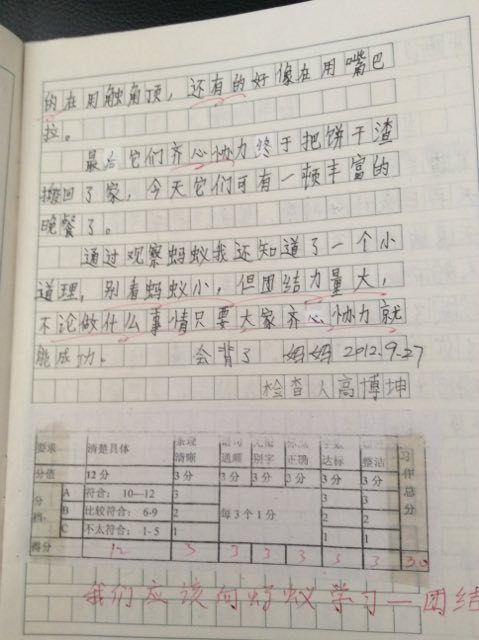 的在用触角顶，还有的好像在用嘴巴
拉。
最后它们齐心协力终于把饼干渣
搬回了家，今天它们可有一顿丰富的
晚餐了。
通过观察蚂蚁我还知道了一个小
道理，别看蚂蚁小，但团结力量大，
不论做什么事情只要大家齐心协力就
能成功。 会背了 妈妈 2012.9.27
检查人高博坤
要求 清楚具体 条理清晰 通顺 别字 正确 达标 整洁 习作总分
分值 12分 3分 3分 3分 3分 3分 3分
分档： A 符合：10—12 3 每3个1分 3 3
B 比较符合：6-9 2 2 2
C 不太符合：1-5 1 1 1
得分 12 3 3 3 3 3 3 30
我们应该向蚂蚁学习—团结